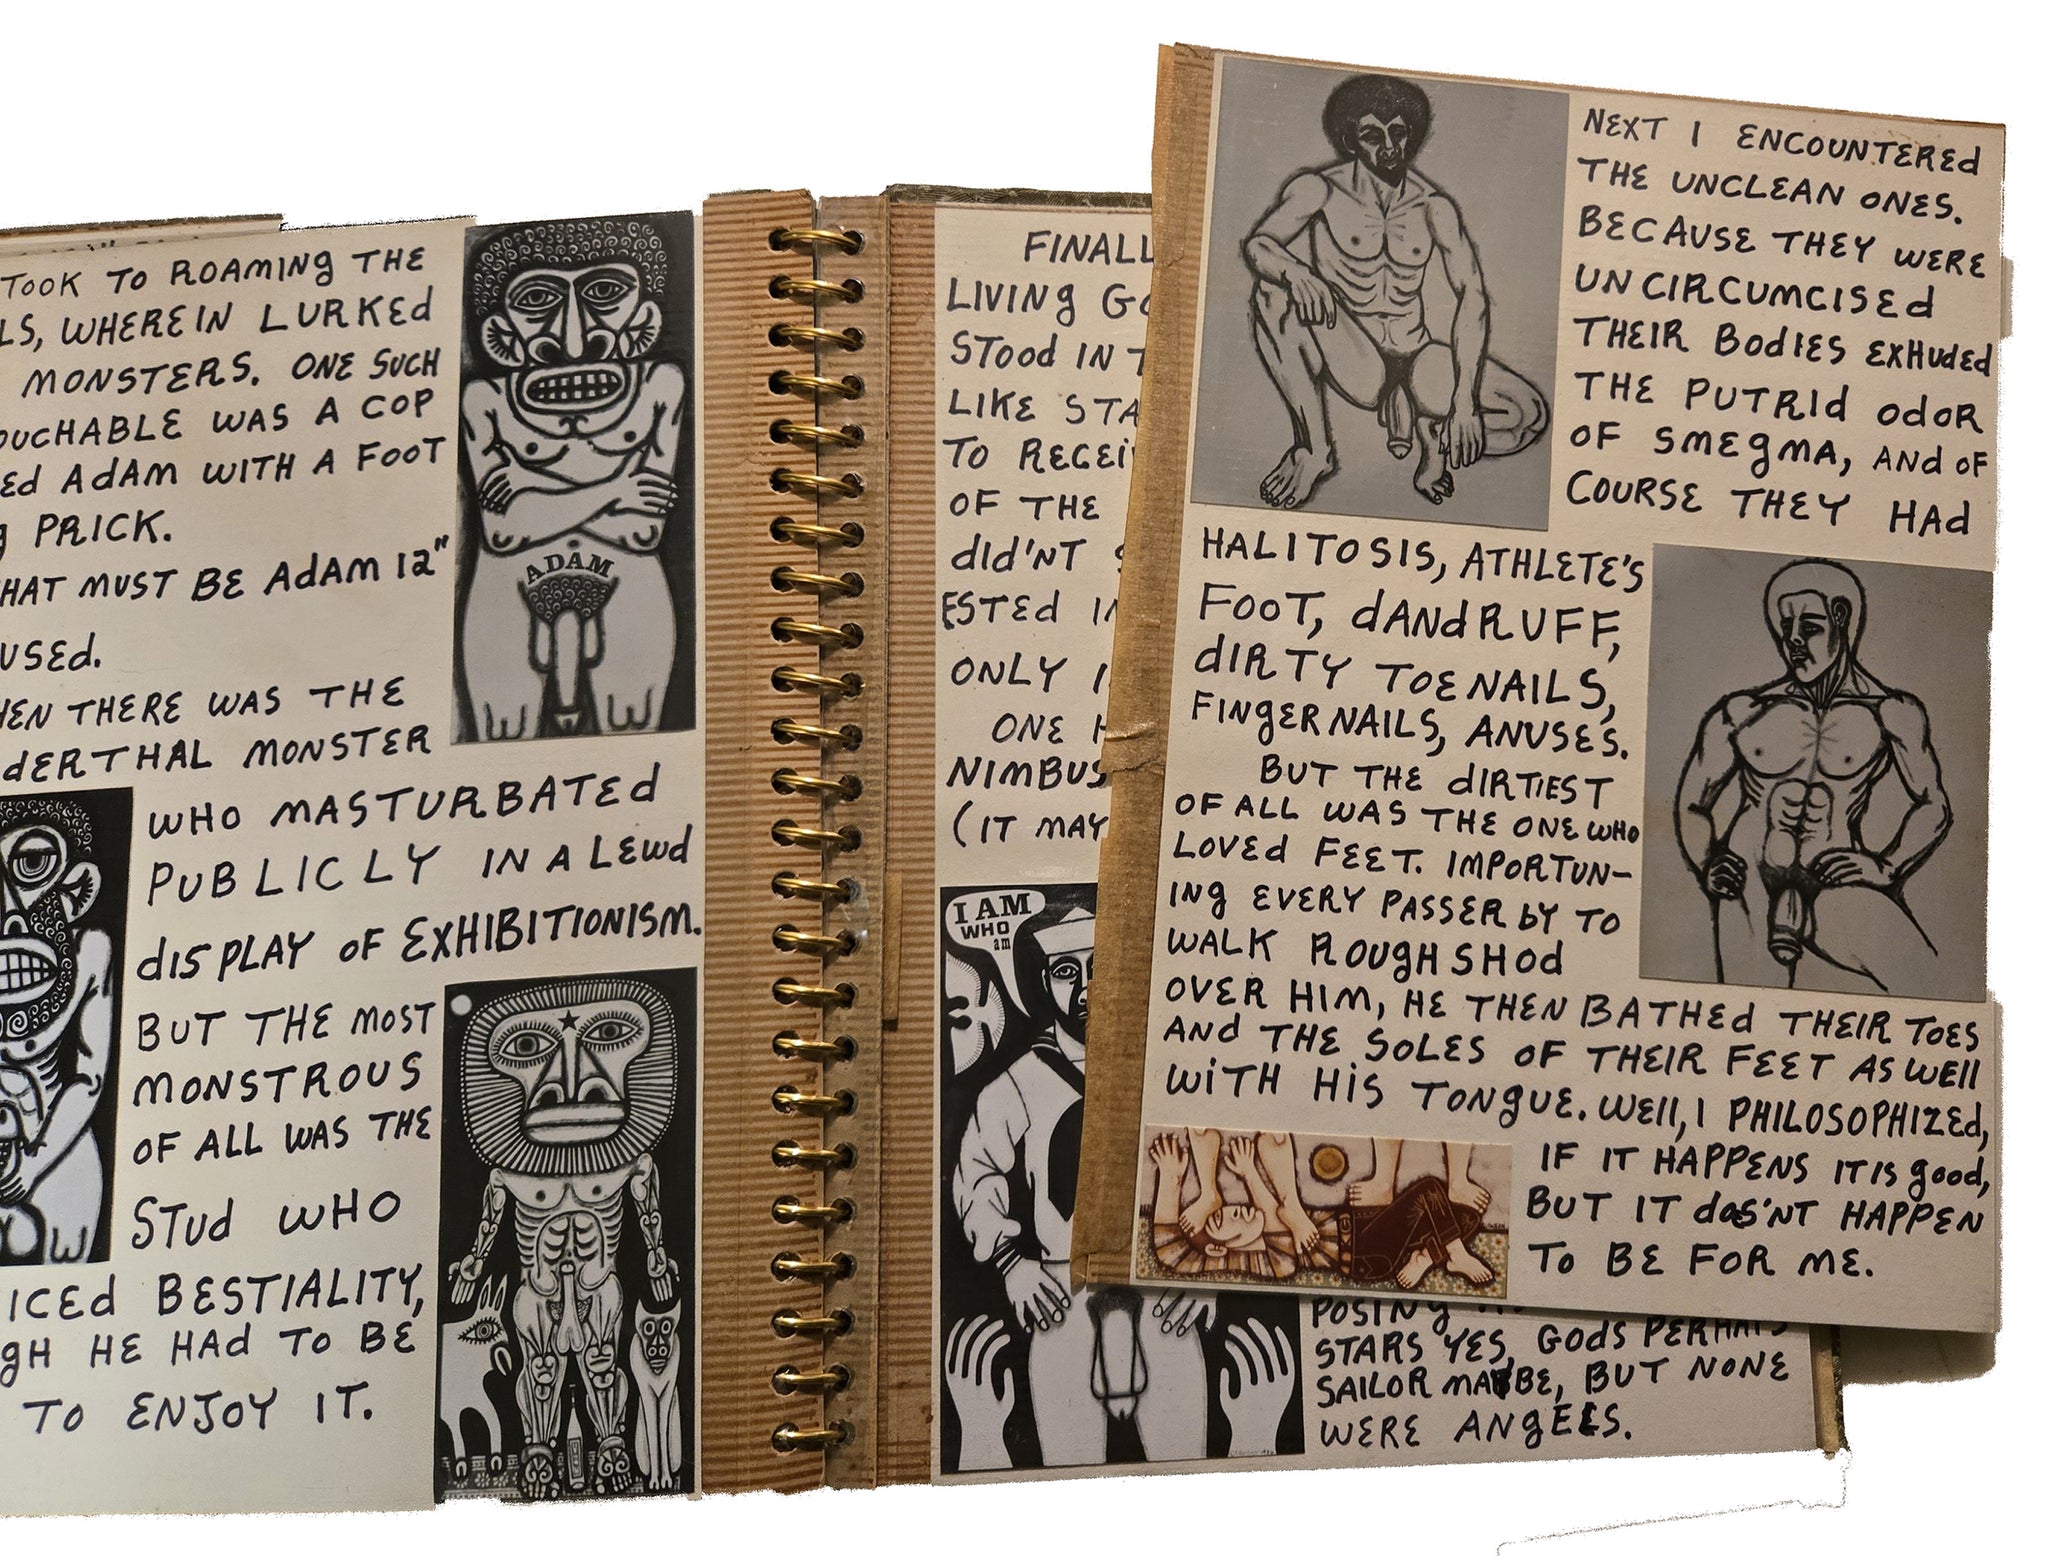 TOOK TO ROAMING THE
LS, WHEREIN LURKED
MONSTERS. ONE SUCH
OUCHABLE WAS A COP
ED ADAM WITH A FOOT
G PRICK.
HAT MUST BE ADAM 12"
USED.
HEN THERE WAS THE
DERTHAL MONSTER
WHO MASTURBATED
PUBLICLY IN A LEWD
DISPLAY OF EXHIBITIONISM.
BUT THE MOST
MONSTROUS
OF ALL WAS THE
STUD WHO
ICED BESTIALITY,
GH HE HAD TO BE
TO ENJOY IT.
ADAM
FINALL
LIVING GO
STOOD IN T
LIKE STA
TO RECEI
OF THE
DID'NT
ESTED IN
ONLY I
ONE H
NIMBUS
(IT MAY
I AM
WHO
am
POSING
STARS YES, GODS PERHAPS
SAILOR MAYBE, BUT NONE
WERE ANGELS.
NEXT I ENCOUNTERED
THE UNCLEAN ONES.
BECAUSE THEY WERE
UNCIRCUMCISED
THEIR BODIES EXHUDED
THE PUTRID ODOR
OF SMEGMA, AND OF
COURSE THEY HAD
HALITOSIS, ATHLETE'S
FOOT, DANDRUFF,
DIRTY TOENAILS,
FINGERNAILS, ANUSES.
BUT THE DIRTIEST
OF ALL WAS THE ONE WHO
LOVED FEET. IMPORTUN-
ING EVERY PASSER BY TO
WALK ROUGHSHOD
OVER HIM, HE THEN BATHED THEIR TOES
AND THE SOLES OF THEIR FEET AS WELL
WITH HIS TONGUE. WELL, I PHILOSOPHIZED,
IF IT HAPPENS IT IS GOOD,
BUT IT DOS'NT HAPPEN
TO BE FOR ME.